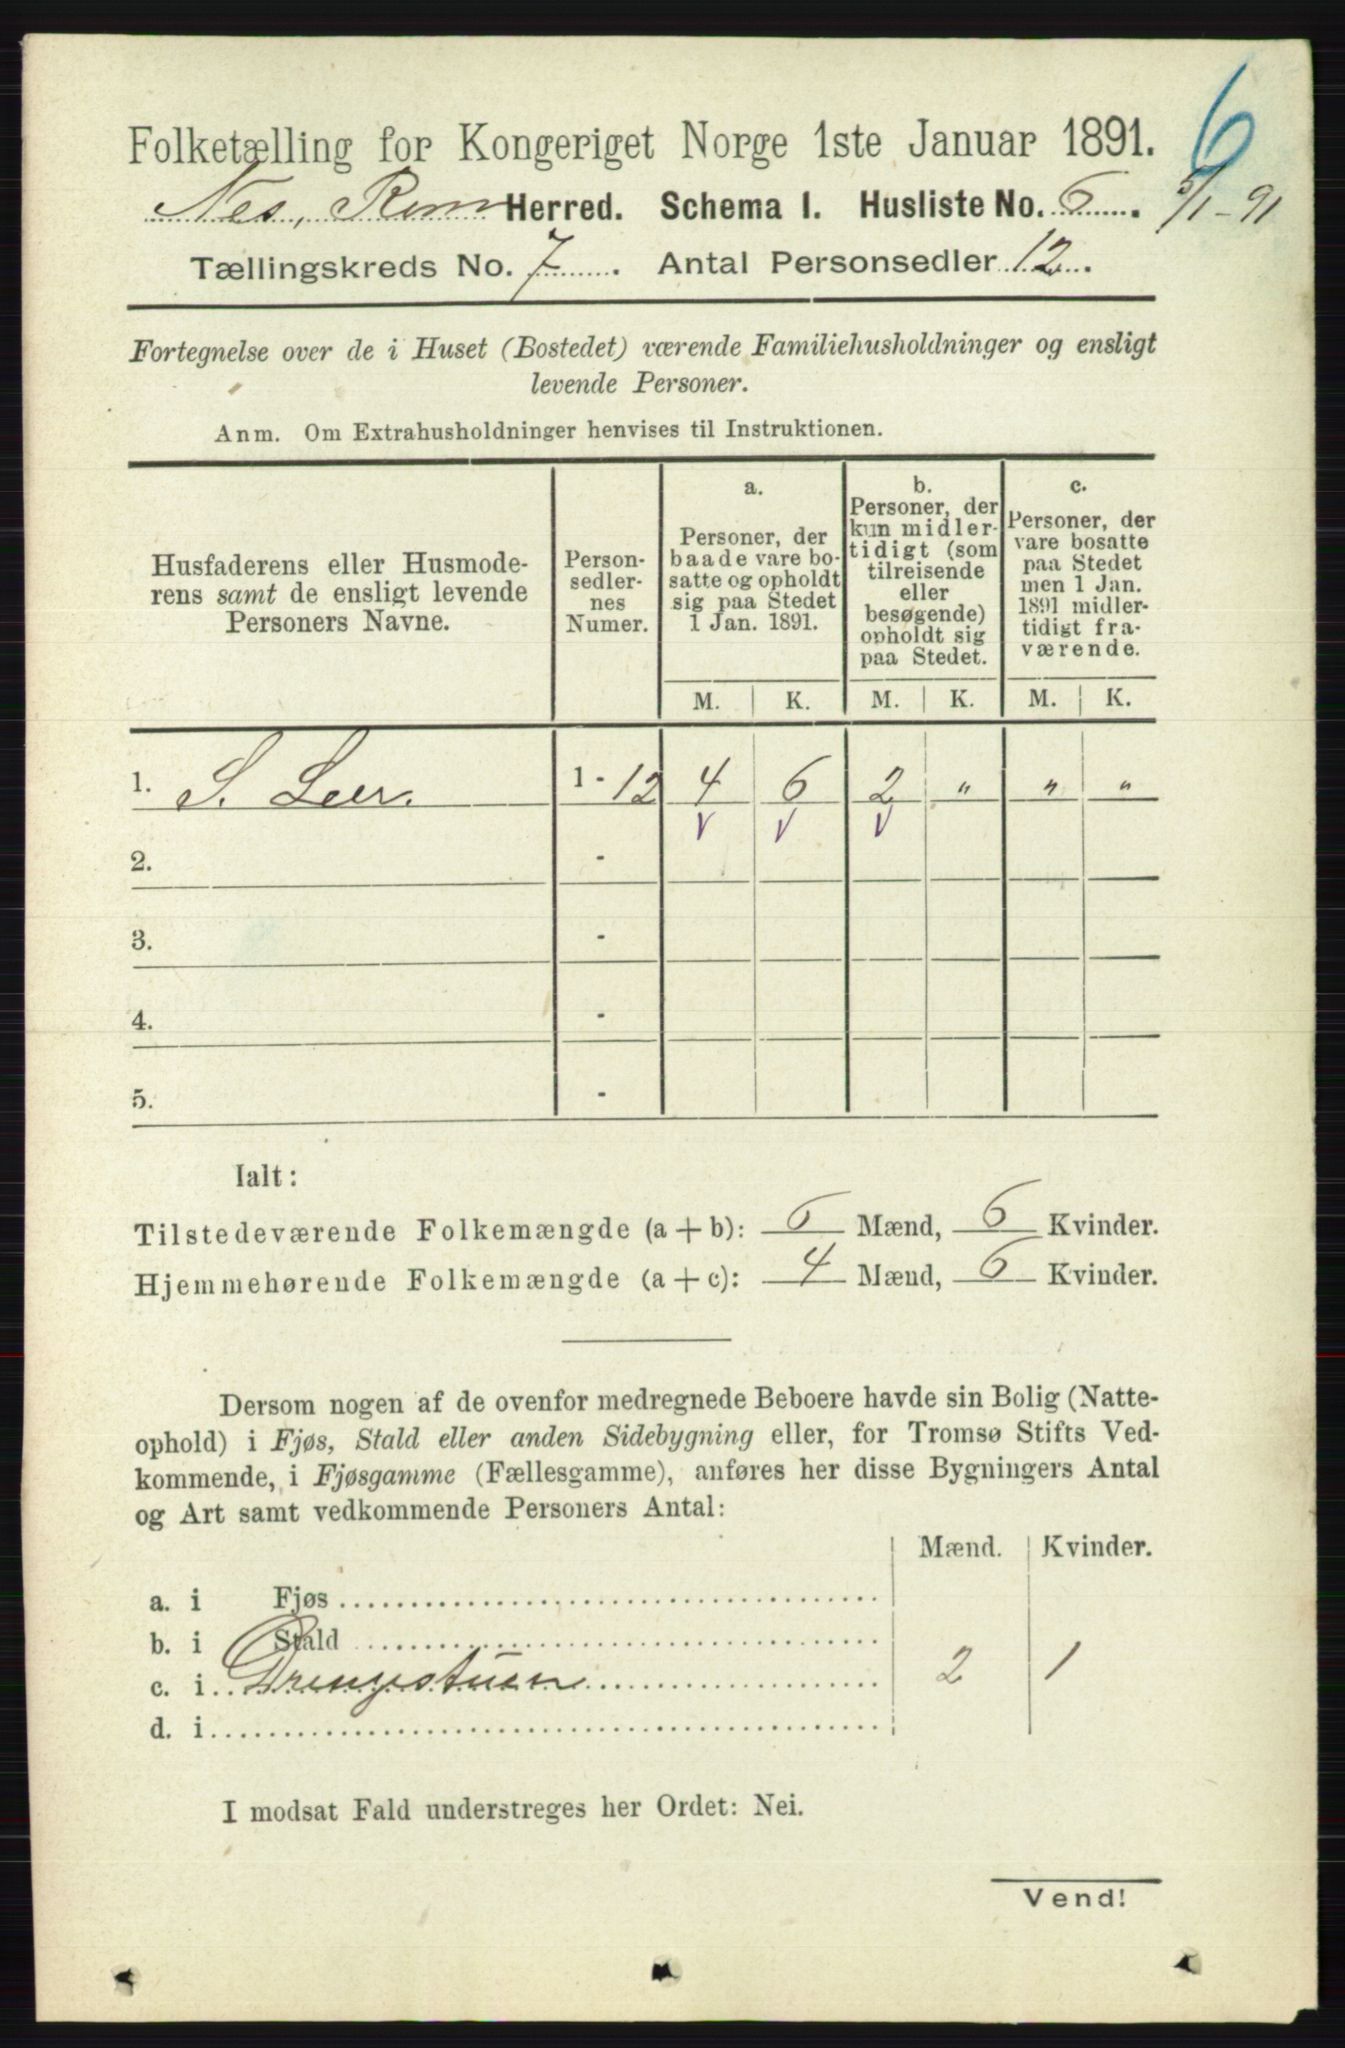 6
Folketælling for Kongeriget Norge 1ste Januar 1891.
Nes, Rom Herred. Schema I. Husliste No. 6. 5/1-91
Tællingskreds No. 7. Antal Personsedler 12.
Fortegnelse over de i Huset (Bostedet) værende Familiehusholdninger og ensligt
levende Personer.
Anm. Om Extrahusholdninger henvises til Instruktionen.
Husfaderens eller Husmode-
rens samt de ensligt levende
Personers Navne.
Person-
sedler-
nes
Numer.
a.
Personer, der
baade vare bo-
satte og opholdt
sig paa Stedet
1 Jan. 1891.
b.
Personer, der
kun midler-
tidigt (som
tilreisende
eller
besøgende)
opholdt sig
paa Stedet.
c.
Personer, der
vare bosatte
paa Stedet
men 1 Jan.
1891 midler-
tidigt fra-
værende.
M. K. M. K. M. K.
1. S. Leer. 1 - 12 4 6 2 " " "
v v v
2. -
3. -
4. -
5. -
Ialt:
Tilstedeværende Folkemængde (a + b): 6 Mænd, 6 Kvinder.
Hjemmehørende Folkemængde (a + c): 4 Mænd, 6 Kvinder.
Dersom nogen af de ovenfor medregnede Beboere havde sin Bolig (Natte-
ophold) i Fjøs, Stald eller anden Sidebygning eller, for Tromsø Stifts Ved-
kommende, i Fjøsgamme (Fællesgamme), anføres her disse Bygningers Antal
og Art samt vedkommende Personers Antal:
Mænd. Kvinder.
a. i Fjøs
b. i Stald
c. i Drengestuen 2 1
d. i
I modsat Fald understreges her Ordet: Nei.
Vend!